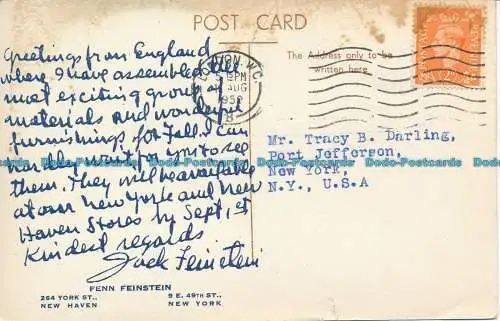 POST CARD
Greetings from England
where I have assembled the
most exciting group of
materials and wonderful
furnishings for Fall. I can
hardly wait for you to see
them. They will be available
at our New York and New
Haven Stores by Sept. 1st
Kindest regards
Jack Feinstein
FENN FEINSTEIN
264 YORK ST.,
NEW HAVEN
9 E. 49TH ST.,
NEW YORK
The Address only to be
written here
LONDON. W.C.
PM
AUG
195
B
Mr. Tracy B. Darling,
Port Jefferson,
New York,
N.Y., U.S.A
Dodo-Postcards Dodo-Postcards Dodo-Postcards Dodo-Postcards